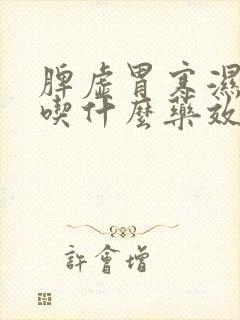 脾虛胃寒濕
喫什麼藥效
許會增